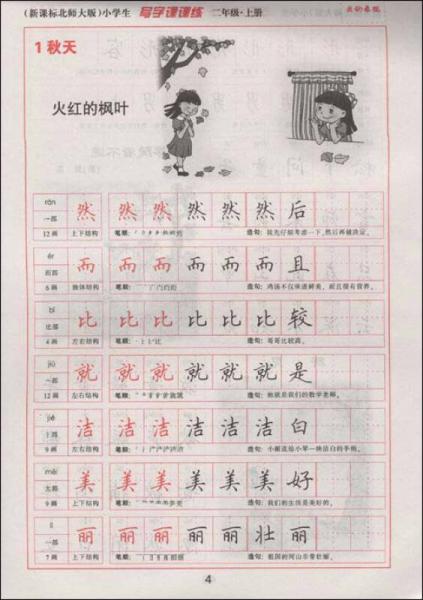 (新课标北师大版)小学生 写字课课练 二年级·上册
1 秋天
火红的枫叶
rán 然 然 然 然 然 然 后
12画 上下结构 笔顺: 造句: 我先仔细考虑一下,然后再做决定。
ér 而 而 而 而 而 而 且
而部
6画 独体结构 笔顺: 造句: 鸡汤不仅味道鲜美,而且很有营养。
bǐ 比 比 比 比 比 比 较
比部
4画 左右结构 笔顺: 造句: 哥哥比较高。
jiù 就 就 就 就 就 就 是
12画 左右结构 笔顺: 造句: 她就是我们的数学老师。
jié 洁 洁 洁 洁 洁 洁 白
9画 左右结构 笔顺: 造句: 小丽送给小琴一块洁白的手绢。
měi 美 美 美 美 美 美 好
9画 上下结构 笔顺: 造句: 我们的生活是美好的。
lì 丽 丽 丽 丽 丽 壮 丽
一部
7画 上下结构 笔顺: 造句: 祖国的河山非常壮丽。
4